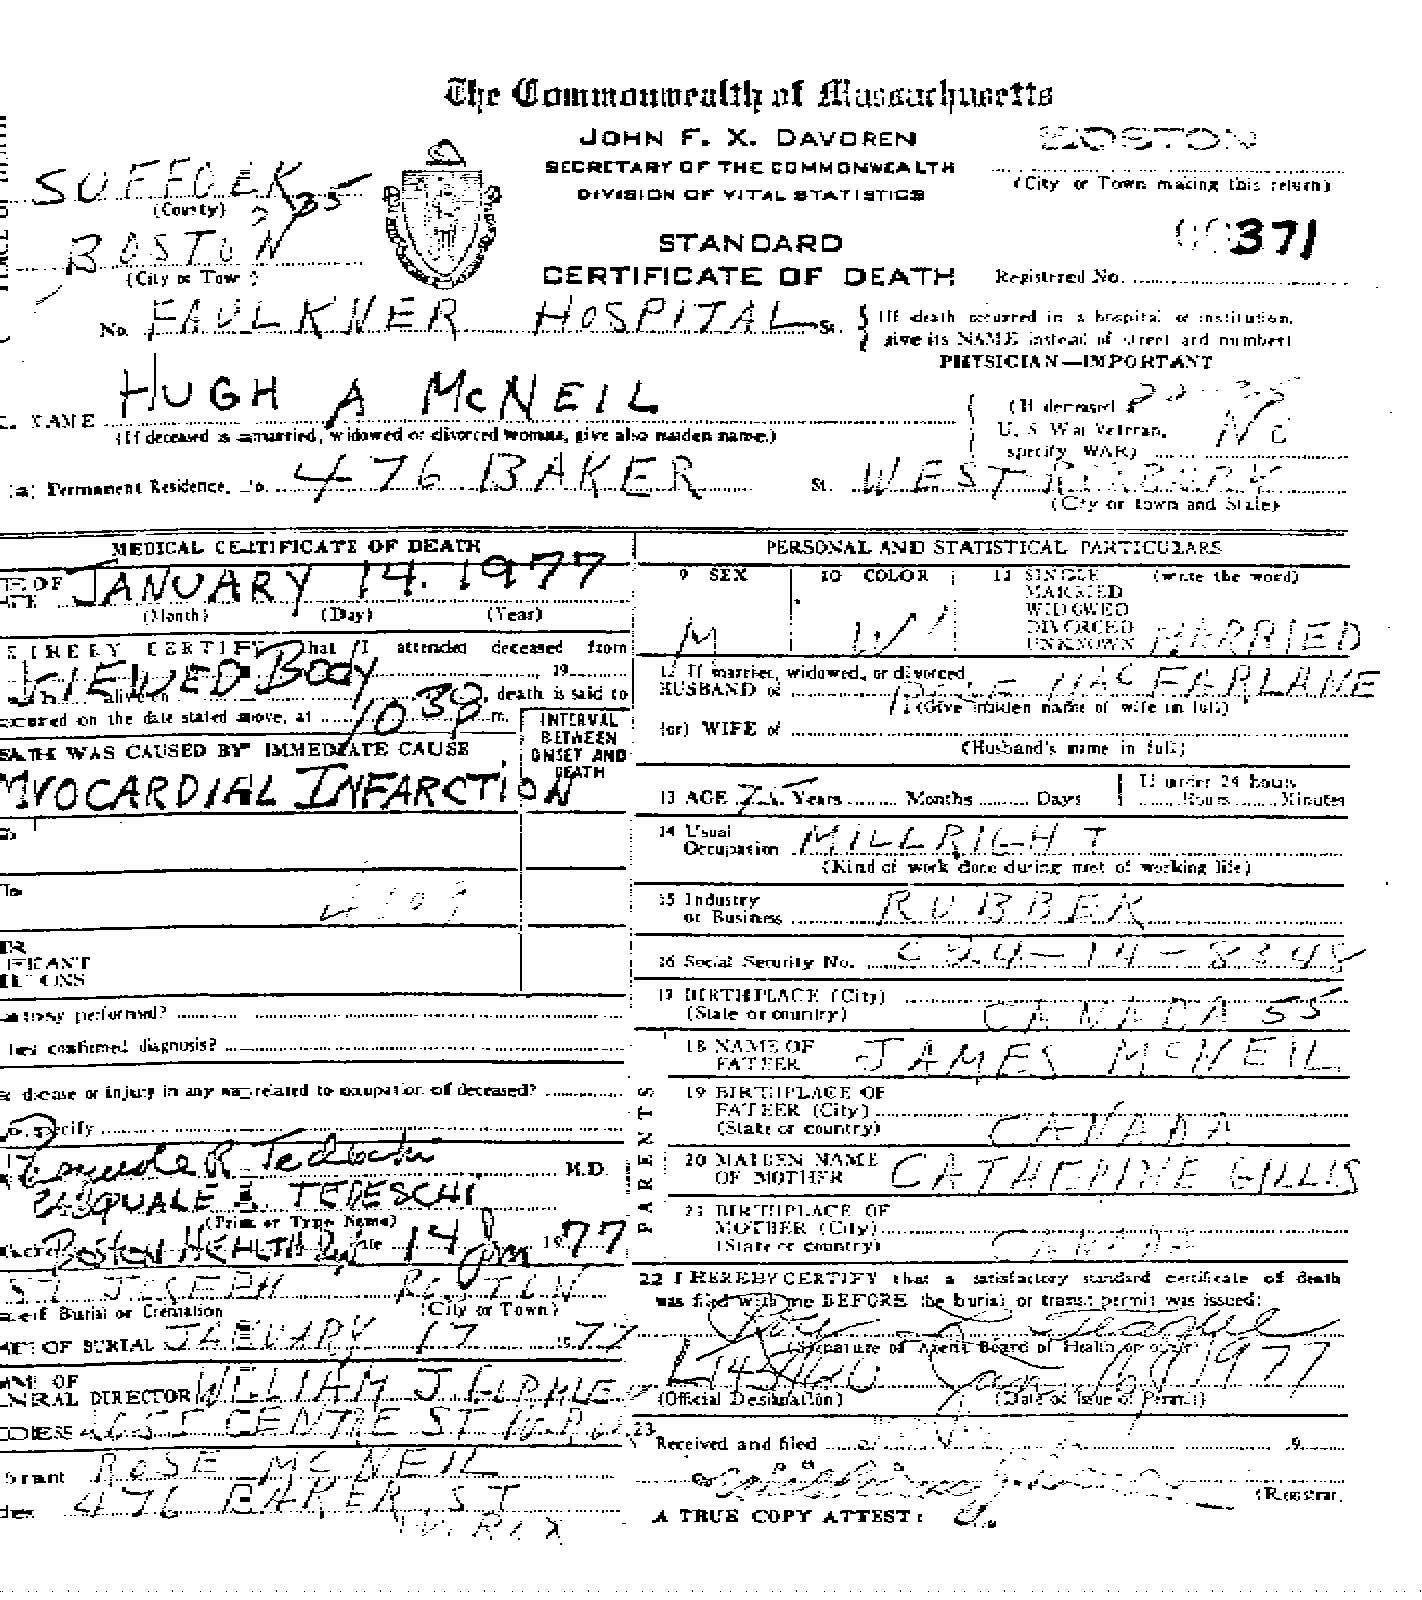 The Commonwealth of Massachusetts
JOHN F. X. DAVOREN
SECRETARY OF THE COMMONWEALTH
DIVISION OF VITAL STATISTICS
STANDARD
CERTIFICATE OF DEATH
BOSTON
(City or Town making this return)
371
Registered No.
SUFFOLK
(County)
BOSTON
(City or Town)
No. FAULKNER HOSPITAL St.
(If death occurred in a hospital or institution,
give its NAME instead of street and number)
PHYSICIAN—IMPORTANT
NAME HUGH A McNEIL
(If deceased is a married, widowed or divorced woman, give also maiden name.)
(If deceased
U. S. War Veteran,
specify WAR) No
(a) Permanent Residence, No. 476 BAKER St. WEST ROXBURY
(City or town and State)
MEDICAL CERTIFICATE OF DEATH
JANUARY 14. 1977
(Month) (Day) (Year)
CERTIFY that I attended deceased from
VIEWED BODY 19
death is said to
occurred on the date stated above, at 10 39 m.
INTERVAL
BETWEEN
ONSET AND
DEATH
DEATH WAS CAUSED BY IMMEDIATE CAUSE
MYOCARDIAL INFARCTION
performed?
confirmed diagnosis?
disease or injury in any way related to occupation of deceased?
specify
M.D.
PASQUALE TEDESCHI
(Print or Type Name)
BOSTON HEALTH 14 1977
ST JOSEPH BOSTON
of Burial or Cremation (City or Town)
OF BURIAL JANUARY 17 1977
OF
DIRECTOR WILLIAM J
CENTRE ST
ROSE MCNEIL
476 BAKER ST
W. ROX
PERSONAL AND STATISTICAL PARTICULARS
9 SEX
M
10 COLOR
W
11 SINGLE
MARRIED
WIDOWED
DIVORCED
UNKNOWN
(write the word)
MARRIED
12 If married, widowed, or divorced
HUSBAND of ROSE MACFARLANE
(Give maiden name of wife in full)
(or) WIFE of
(Husband's name in full)
13 AGE 75 Years Months Days
If under 24 hours
Hours Minutes
14 Usual
Occupation MILLRIGHT
(Kind of work done during most of working life)
15 Industry
or Business RUBBER
16 Social Security No.
17 BIRTHPLACE (City)
(State or country) CANADA 55
PARENTS
18 NAME OF
FATHER JAMES MCNEIL
19 BIRTHPLACE OF
FATHER (City)
(State or country) CANADA
20 MAIDEN NAME
OF MOTHER CATHERINE GILLIS
21 BIRTHPLACE OF
MOTHER (City)
(State or country) CANADA
22 I HEREBY CERTIFY that a satisfactory standard certificate of death
was filed with me BEFORE the burial or transit permit was issued:
(Signature of Agent Board of Health or other)
Jan 1977
(Official Designation) (Date of Issue of Permit)
23
Received and filed 19
(Registrar)
A TRUE COPY ATTEST: